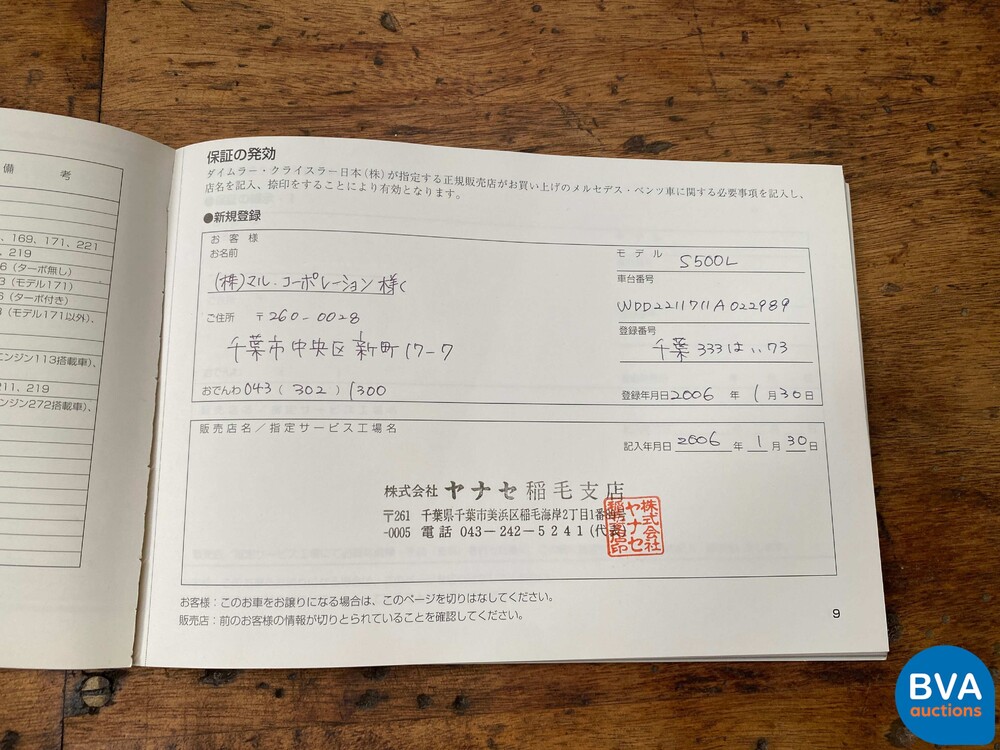 備 考
169、171、221
、219
6（ターボ無し）
3（モデル171）
6（ターボ付き）
（モデル171以外）、
エンジン113搭載車）、
211、219
ンジン272搭載車）、
保証の発効
ダイムラー・クライスラー日本（株）が指定する正規販売店がお買い上げのメルセデス・ベンツ車に関する必要事項を記入し、
店名を記入、捺印をすることにより有効となります。
●新規登録
お客様
お名前
（株）マル．コーポレーション 様
ご住所 〒260-0028
千葉市中央区新町17-7
おでんわ 043（302）1300
モデル S500L
車台番号
WDD2211711A022989
登録番号
千葉 333 は ‥73
登録年月日 2006 年 1 月 30 日
販売店名／指定サービス工場名
記入年月日 2006 年 1 月 30 日
株式会社 ヤナセ 稲毛支店
〒261 千葉県千葉市美浜区稲毛海岸2丁目1番
-0005 電話 043-242-5241(代表)
株式会社
ヤナセ
稲毛
お客様：このお車をお譲りになる場合は、このページを切りはなしてください。
販売店：前のお客様の情報が切りとられていることを確認してください。
9
BVA
auctions